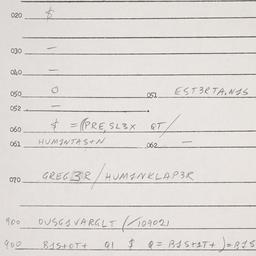 020 $
030 —
040 —
050 O 051 EST3RTA.N1S
052 —
060 $ =(PRE,SL3X QT/
061 HUM1NTAS+N 062 —
070 GREG3R/HUM1NKLAP3R
900 OUSG1VARGLT (/109021
900 B1S+OT+ Q1 $ Q=B1S+1T+)=B1S